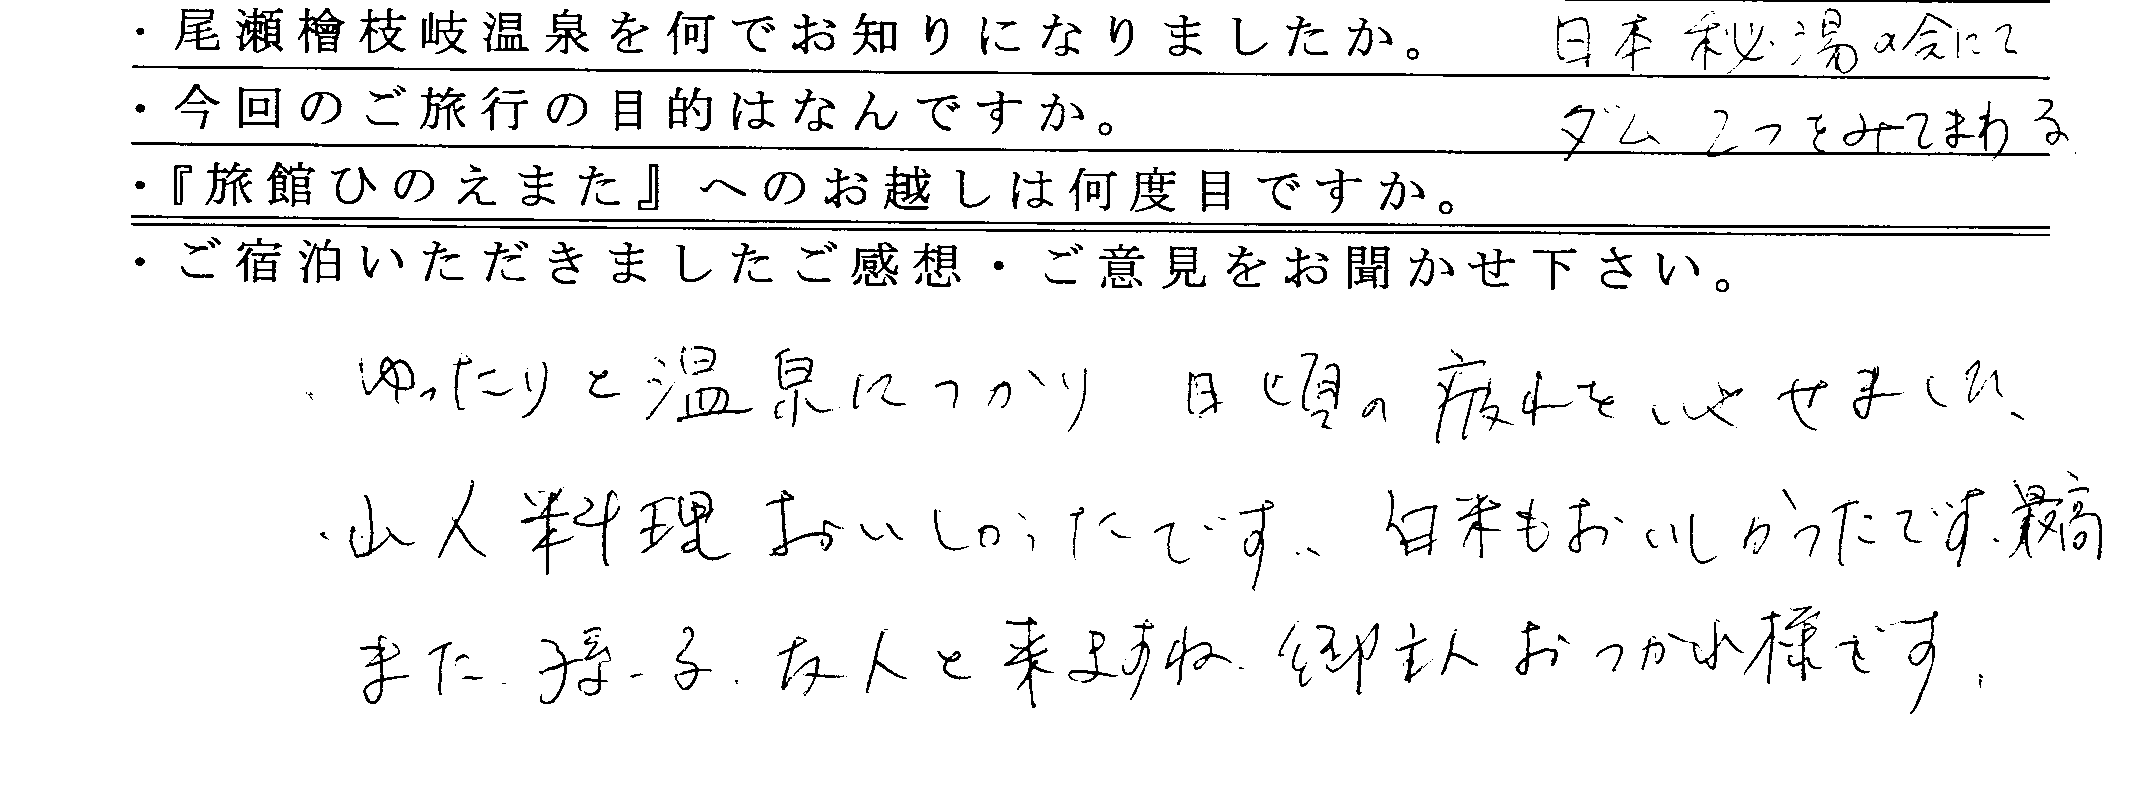 ・尾瀬檜枝岐温泉を何でお知りになりましたか。 日本秘湯の会にて
・今回のご旅行の目的はなんですか。 ダム2つをみてまわる
・『旅館ひのえまた』へのお越しは何度目ですか。
・ご宿泊いただきましたご感想・ご意見をお聞かせ下さい。
・ゆったりと温泉につかり 日頃の疲れをいやせました、
・山人料理おいしかったです、、白米もおいしかったです、最高
また、孫、子、友人と来ますね、御主人おつかれ様です、